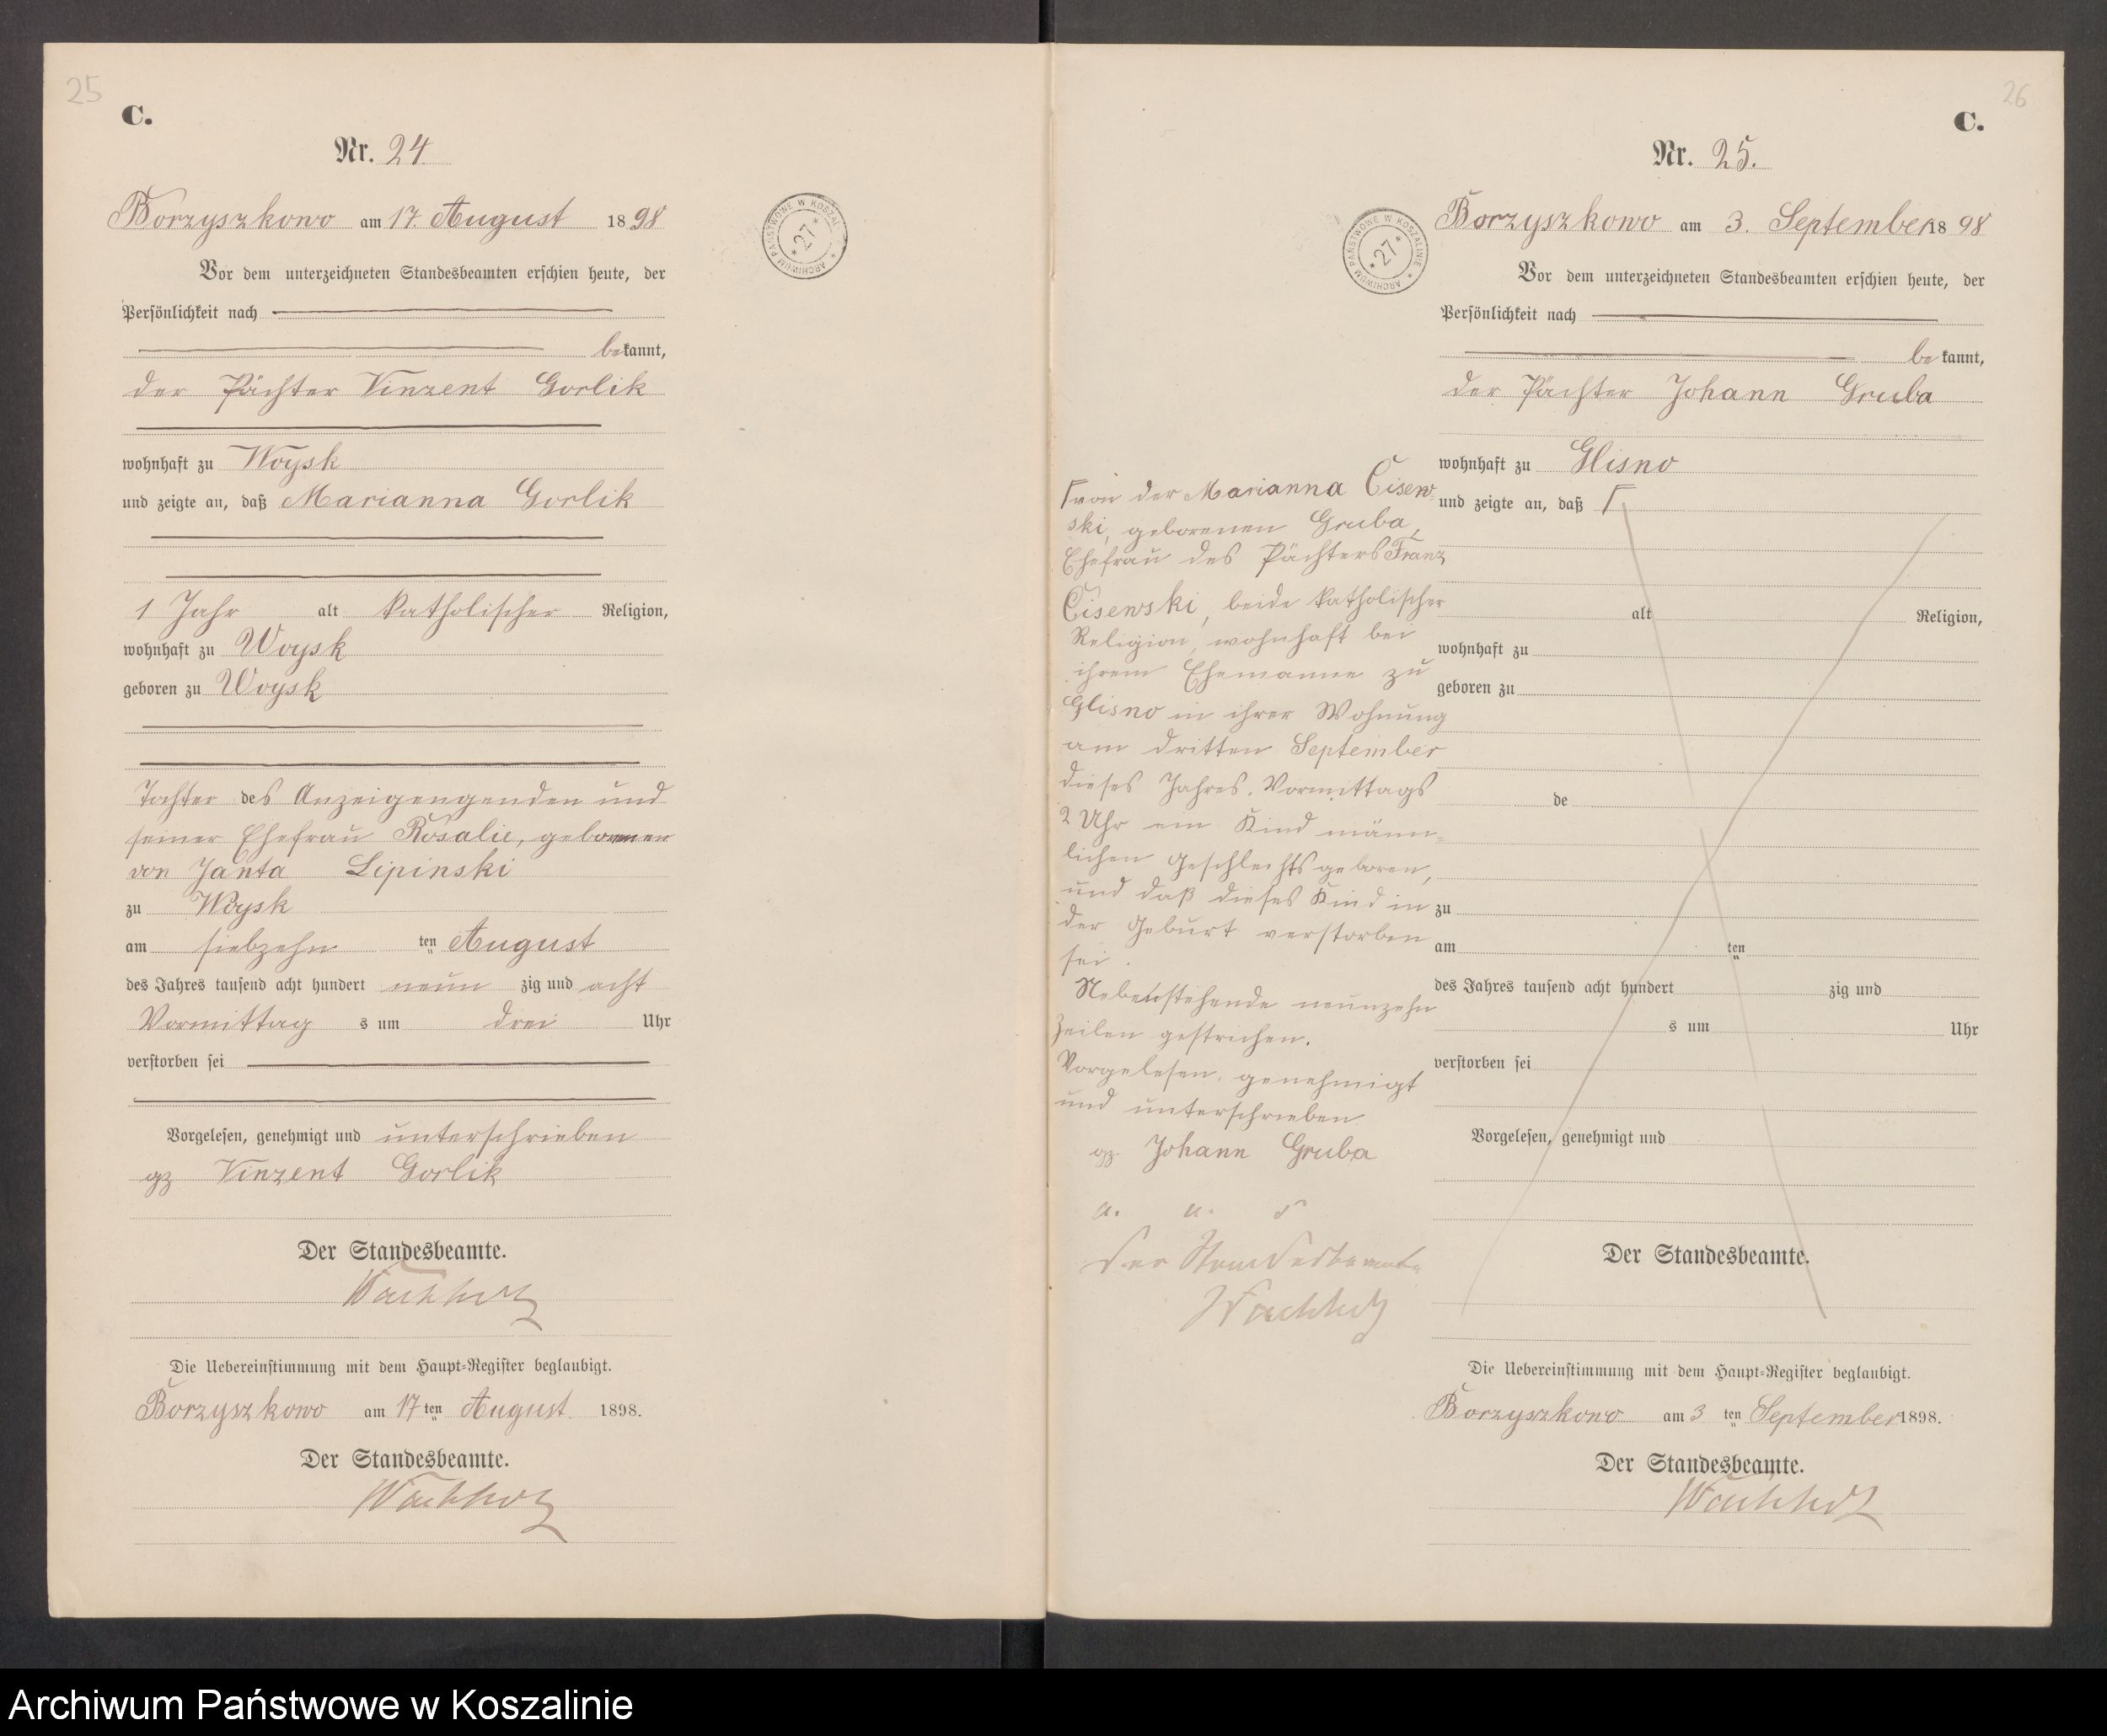 25
C.
Nr. 24.
Borzyszkowo am 17. August 1898
Vor dem unterzeichneten Standesbeamten erschien heute, der
Persönlichkeit nach
bekannt,
der Pächter Vinzent Gorlik
wohnhaft zu Woysk
und zeigte an, daß Marianna Gorlik
1 Jahr alt katholischer Religion,
wohnhaft zu Woysk
geboren zu Woysk
Tochter des Anzeigengenden und
seiner Ehefrau Rosalie, geborenen
von Janta Lipinski
zu Woysk
am siebzehn ten August
des Jahres tausend acht hundert neun zig und acht
Vormittag s um drei Uhr
verstorben sei
Vorgelesen, genehmigt und unterschrieben
gz Vinzent Gorlik
Der Standesbeamte.
Wachholz
Die Uebereinstimmung mit dem Haupt-Register beglaubigt.
Borzyszkowo am 17 ten August 1898.
Der Standesbeamte.
Wachholz
ARCHIWUM PAŃSTWOWE W KOSZALINIE
*27*
26
C.
Nr. 25.
ARCHIWUM PAŃSTWOWE W KOSZALINIE
*27*
Borzyszkowo am 3. September 1898
Vor dem unterzeichneten Standesbeamten erschien heute, der
Persönlichkeit nach
bekannt,
der Pächter Johann Gruba
wohnhaft zu Glisno
und zeigte an, daß Γ
alt Religion,
wohnhaft zu
geboren zu
de
zu
am ten
des Jahres tausend acht hundert zig und
s um Uhr
verstorben sei
Vorgelesen, genehmigt und
Γ von der Marianna Cisew-
ski, geborenen Gruba,
Ehefrau des Pächters Franz
Cisewski, beide katholischer
Religion, wohnhaft bei
ihrem Ehemanne zu
Glisno in ihrer Wohnung
am dritten September
dieses Jahres, Vormittags
2 Uhr ein Kind männ-
lichen Geschlechts geboren,
und daß dieses Kind in
der Geburt verstorben
sei.
Nebenstehende neunzehn
Zeilen gestrichen.
Vorgelesen, genehmigt
und unterschrieben
gz. Johann Gruba
a. u. s
Der Standesbeamte
Wachholz
Der Standesbeamte.
Die Uebereinstimmung mit dem Haupt-Register beglaubigt.
Borzyszkowo am 3 ten September 1898.
Der Standesbeamte.
Wachholz
Archiwum Państwowe w Koszalinie